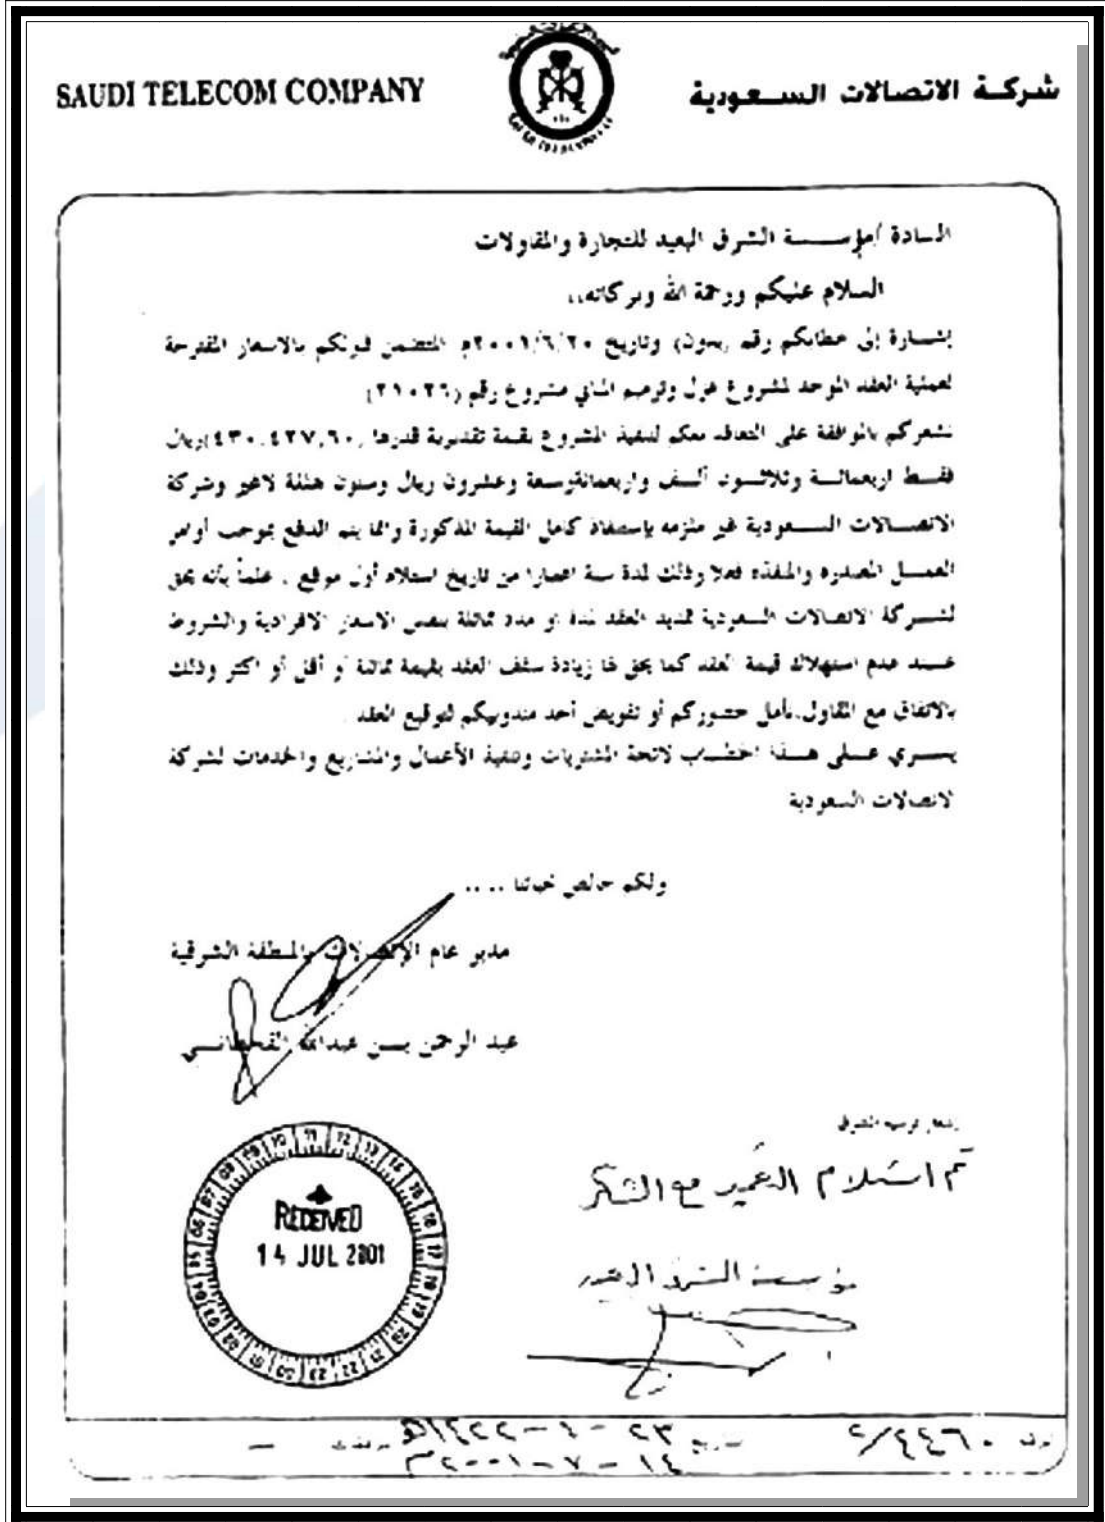 SAUDI TELECOM COMPANY
شركة الاتصالات السعودية
السادة / مؤسسة الشرق البعيد للتجارة والمقاولات
السلام عليكم ورحمة الله وبركاته،،
إشارة إلى خطابكم رقم (بدون) وتاريخ ٢٠٠١/٦/٢٠م المتضمن قبولكم بالاسعار المقترحة
لعملية العقد الموحد لمشروع عزل وترميم المباني مشروع رقم (٢١٠٢٦)
نشعركم بالموافقة على التعاقد معكم لتنفيذ المشروع بقيمة تقديرية قدرها (٤٣٠,٤٢٧,٦٠)ريال
فقط اربعمائة وثلاثون ألف واربعمائةوسبعة وعشرون ريال وستون هللة لاغير وشركة
الاتصالات السعودية غير ملزمه بإستنفاذ كامل القيمة المذكورة وانما يتم الدفع بموجب أوامر
العمل المصدره والمنفذه فعلا وذلك لمدة سنة اعتبارا من تاريخ استلام أول موقع . علماً بأنه يحق
لشركة الاتصالات السعودية تمديد العقد لمدة او مدد مماثلة بنفس الاسعار الافرادية والشروط
عند عدم استهلاك قيمة العقد كما يحق لها زيادة سقف العقد بقيمة مماثلة أو أقل أو اكثر وذلك
بالاتفاق مع المقاول.نأمل حضوركم أو تفويض أحد مندوبيكم لتوقيع العقد .
يسري على هذا الخطاب لائحة المشتريات وتنفيذ الأعمال والمشاريع والخدمات لشركة
لاتصالات السعودية
ولكم خالص تحياتنا ....
مدير عام الإتصالات بالمنطقة الشرقية
عبد الرحمن بن عبدالله القحطاني
تم استلام التعميد مع الشكر
مؤسسة الشرق البعيد
RECEIVED
14 JUL 2001
رقم ٢/٤٤٦٠ تاريخ ٢٣-٤-١٤٢٢هـ
١٤-٧-٢٠٠١م